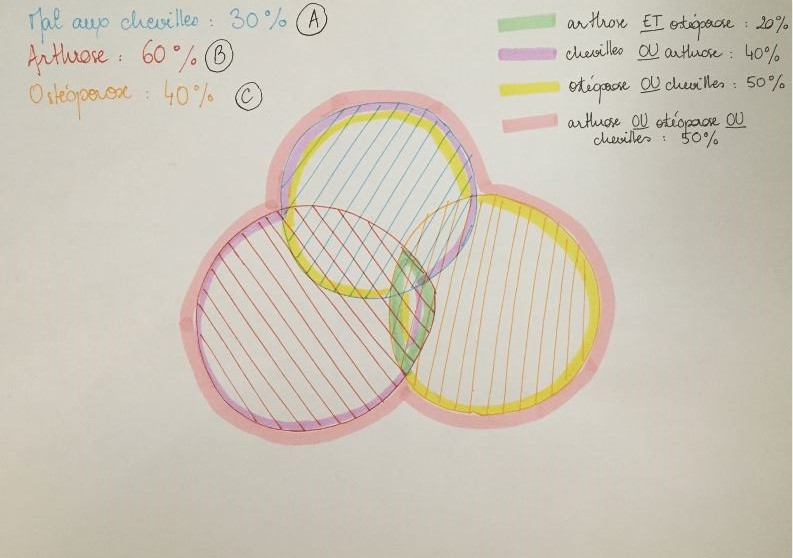 Mal aux chevilles : 30% A
Arthrose : 60% B
Ostéoporose : 40% C
arthrose ET ostéoporose : 20%
chevilles OU arthrose : 40%
ostéoporose OU chevilles : 50%
arthrose OU ostéoporose OU
chevilles : 50%